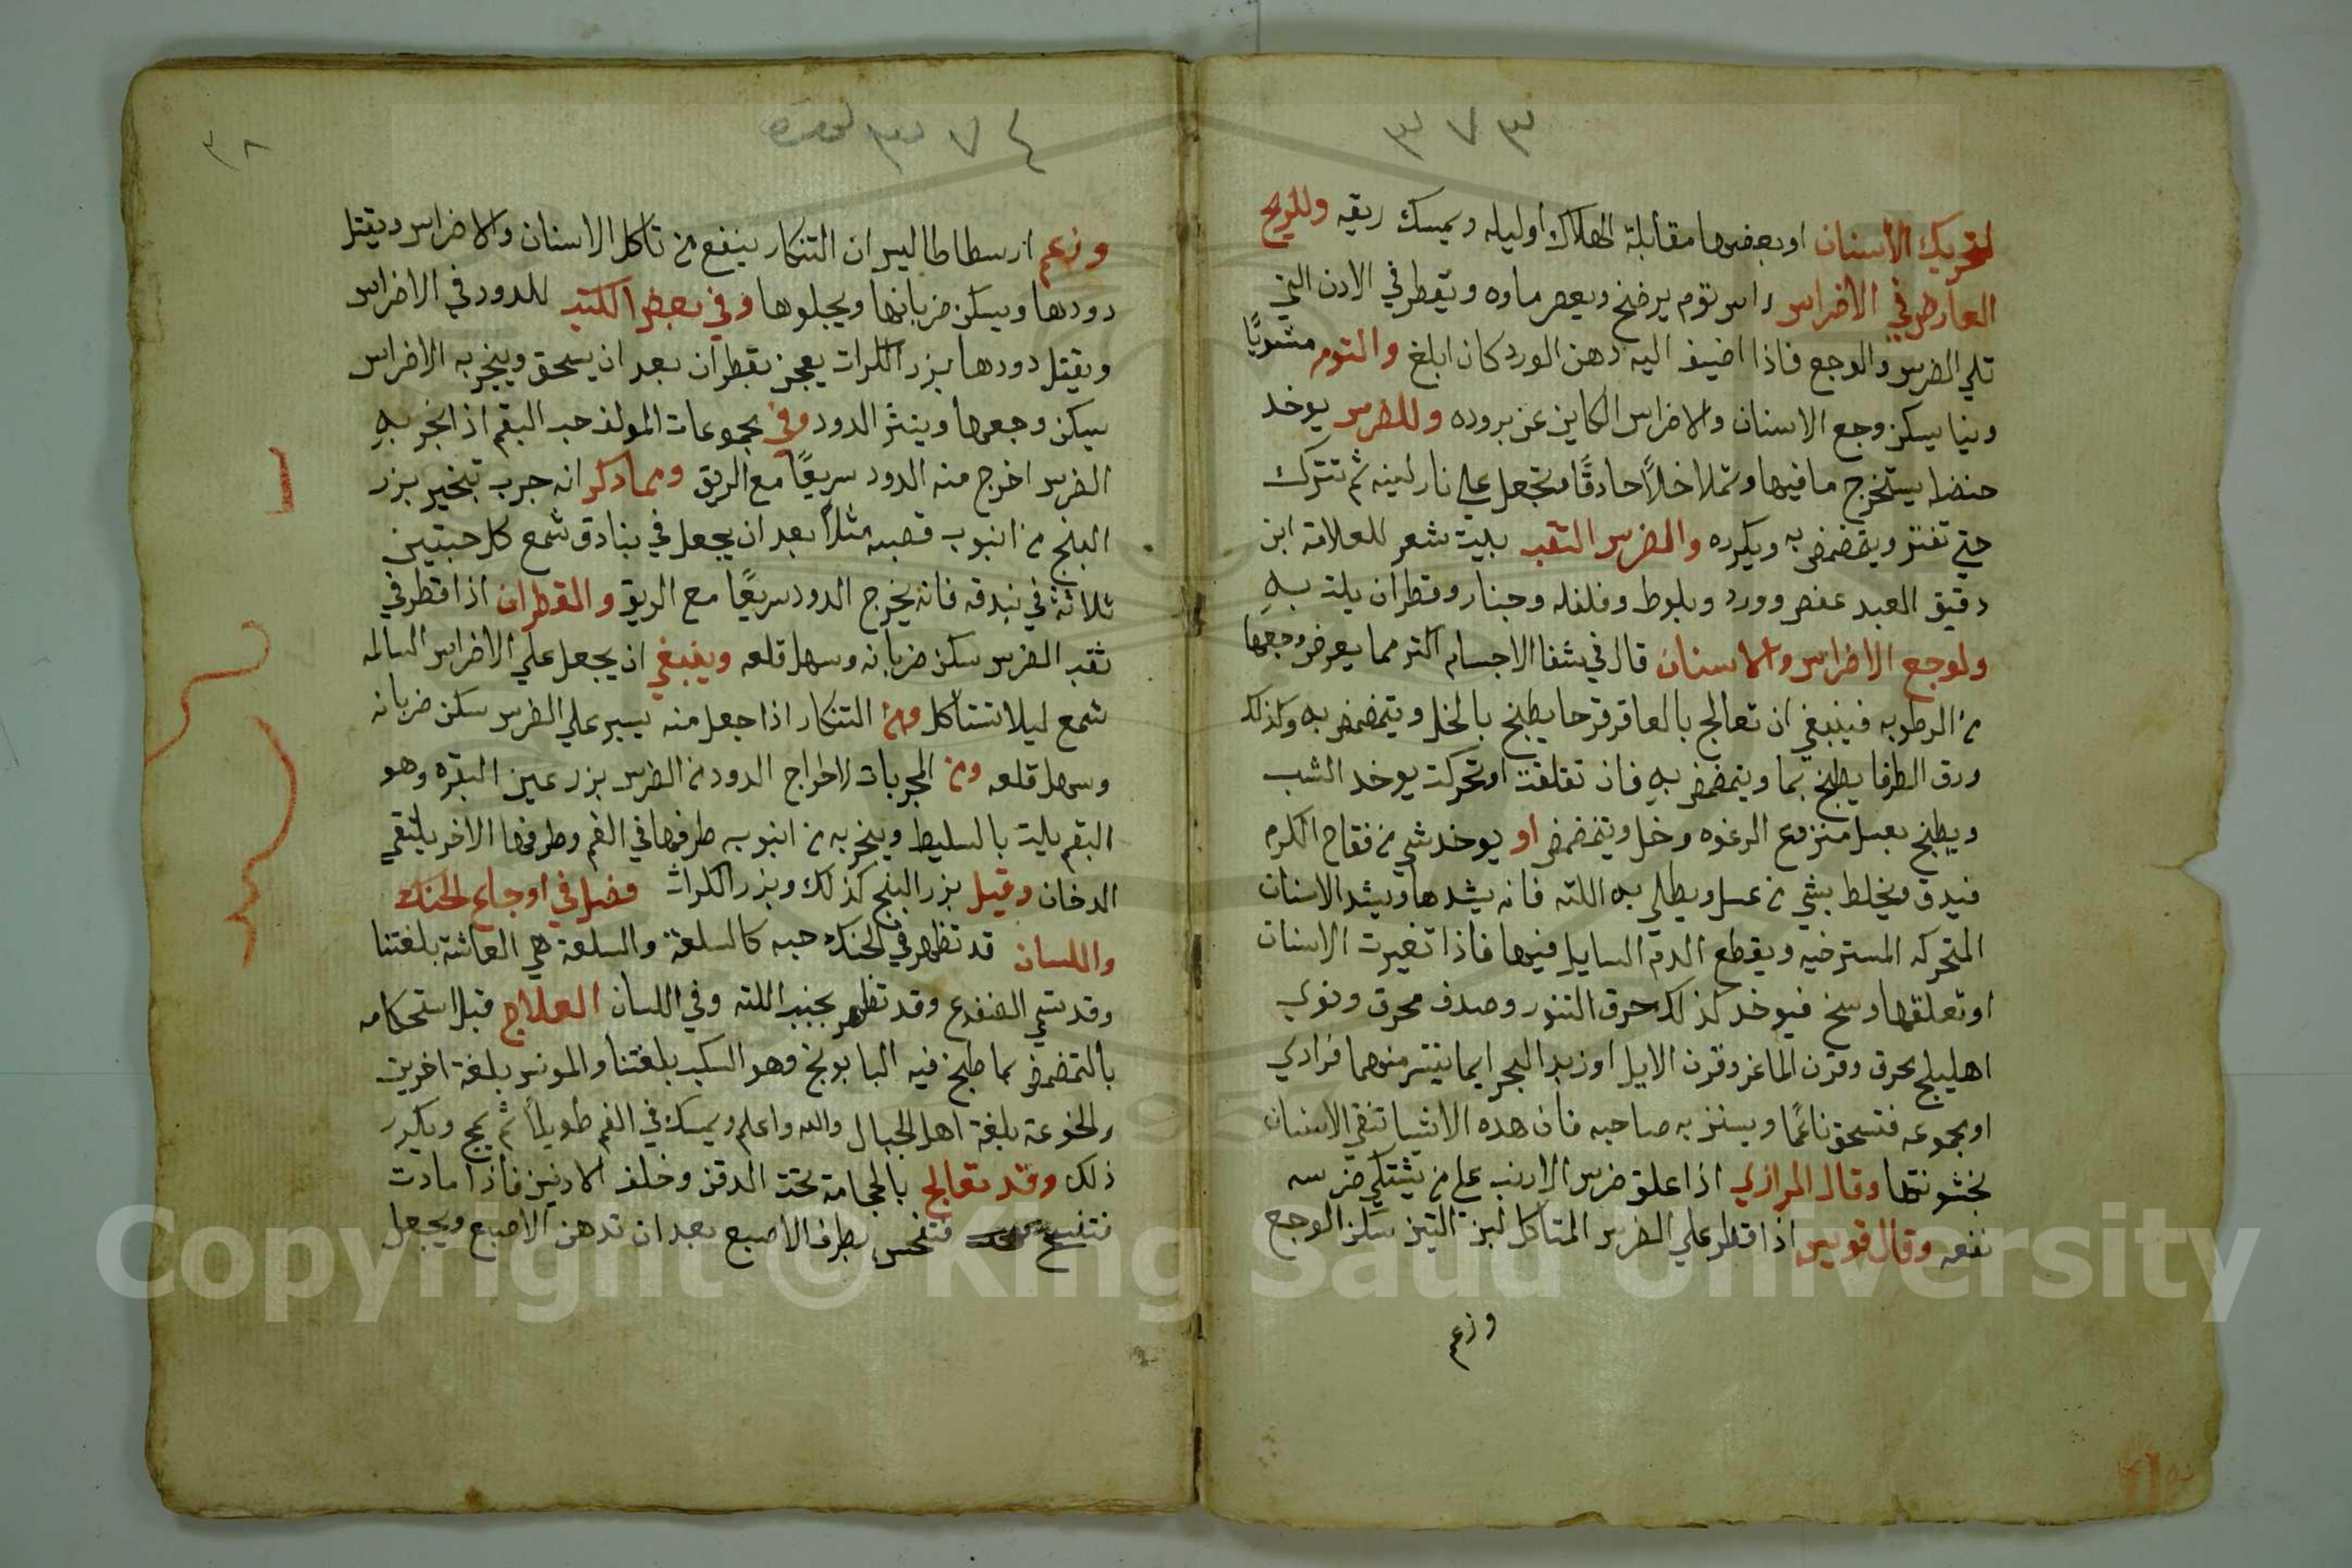 ٣٧٣
لتحريك الأسنان او بعضها مقابلة الهلاك أوليله ويمسك ريقه وللريح
العارض في الاضراس راس توم يرضخ ويعصر ماوه ويقطر في الادن التي
تلي الضرس والوجع فاذا اضيف اليه دهن الورد كان ابلغ والتوم مشويًا
ونيا يسكن وجع الاسنان والاضراس الكاين عن بروده وللضرس يوخد
حنضل يستخرج ما فيها وتملا خلاً حادقًا وتجعل على نار لينه ثم تترك
حتي تفتر ويتمضمض به ويكرره والضرس التقب بليت شعر للعلامة ابن
دقيق العيد عفص وورد وبلوط وفلفله وجنار وقطران يلت بهِ
ولوجع الاضراس والاسنان قال في شفا الاجسام اكثر مما يعرض وجعها
من الرطوبه فينبغي ان تعالج بالعاقر قرحا يطبخ بالخل ويتمضمض به وكذلك
ورق الطرفا يطبخ بما ويتمضمض بهِ فان تقلقت او تحركت يوخد الشب
ويطبخ بعسل منزوع الرغوه وخل ويتمضمض او يوخد شي من فقاح الكرم
فيدق ويخلط بشي من عسل ويطلي به اللثه فانه يشدها ويشد الاسنان
المتحركه المسترخيه ويقطع الدم السايل فيها فاذا تغيرت الاسنان
او تعلقها وسخ فيوخد لذلك حرق التنور وصدف محرق ونوي
اهليلج محرق وقرن الماعز وقرن الايل او زبد البحر ايما تيسر منهما فرادي
او مجموعه فتسحق ناعمًا ويستن به صاحبه فان هده الاشيا تنقي الاسنان
بخشونتها وقال الرازي اذا علق ضرس الارنب علي من يشتكي ضرسه
نفعه وقال قويس اذا قطر علي الضرس المتاكل لبن التين سكن الوجع
وزعم
٣٧٤
٣٨
وزعم ارسطاطاليس ان التنكار ينفع من تاكل الاسنان والاضراس ويقتل
دودها ويسكن ضربانها ويجلوها وفي بعض الكتب للدود في الاضراس
ويقتل دودها بزر الكرات يعجن بقطران بعد ان يسحق ويبخر به الاضراس
يسكن وجعها وينثر الدود وفي مجموعات المولف حب البقم اذا بخر بهِ
الضرس اخرج منه الدود سريعًا مع الريق ومما دكر انه جرب تبخير بزر
البنج من انبوب قصبه مثلاً بعد ان يجعل في بنادق شمع كل حبتين
ثلاثة في بندقه فانه يخرج الدود سريعًا مع الريق والقطران اذا قطر في
ثقب الضرس سكن ضربانه وسهل قلعه وينبغي ان يجعل علي الاضراس السالمه
شمع ليلا تتاكل ومن التنكار اذا جعل منه يسير علي الضرس سكن ضربانه
وسهل قلعه ومن المجربات لاخراج الدود من الضرس بزر عين البقره وهو
البقم يلت بالسليط ويبخر به من انبوبه طرفها في الفم وطرفها الاخر يلتقي
الدخان وقيل بزر البنج كذلك وبزر الكراث فصل في اوجاع الحنك
واللسان قد تظهر في الحنك حبه كالسلعة والسلعة هي العاثة بلغتنا
وقد تسمي الضفدع وقد تظهر بجنب اللثه وفي اللسان العلاج قبل استحكامه
بالتمضمض بما طبخ فيه البابونج وهو السكب بلغتنا والمونس بلغة اخرين
والخوعة بلغة اهل الجبال والله واعلم ويمسك في الفم طويلاً ثم يمج ويكرر
ذلك وقد تعالج بالحجامة تحت الدقن وخلف الادنين فاذا مادت
فتفسخ فتغمس بطرف الاصبع بعد ان تدهن الاصبع ويجعل
Copyright © King Saud University